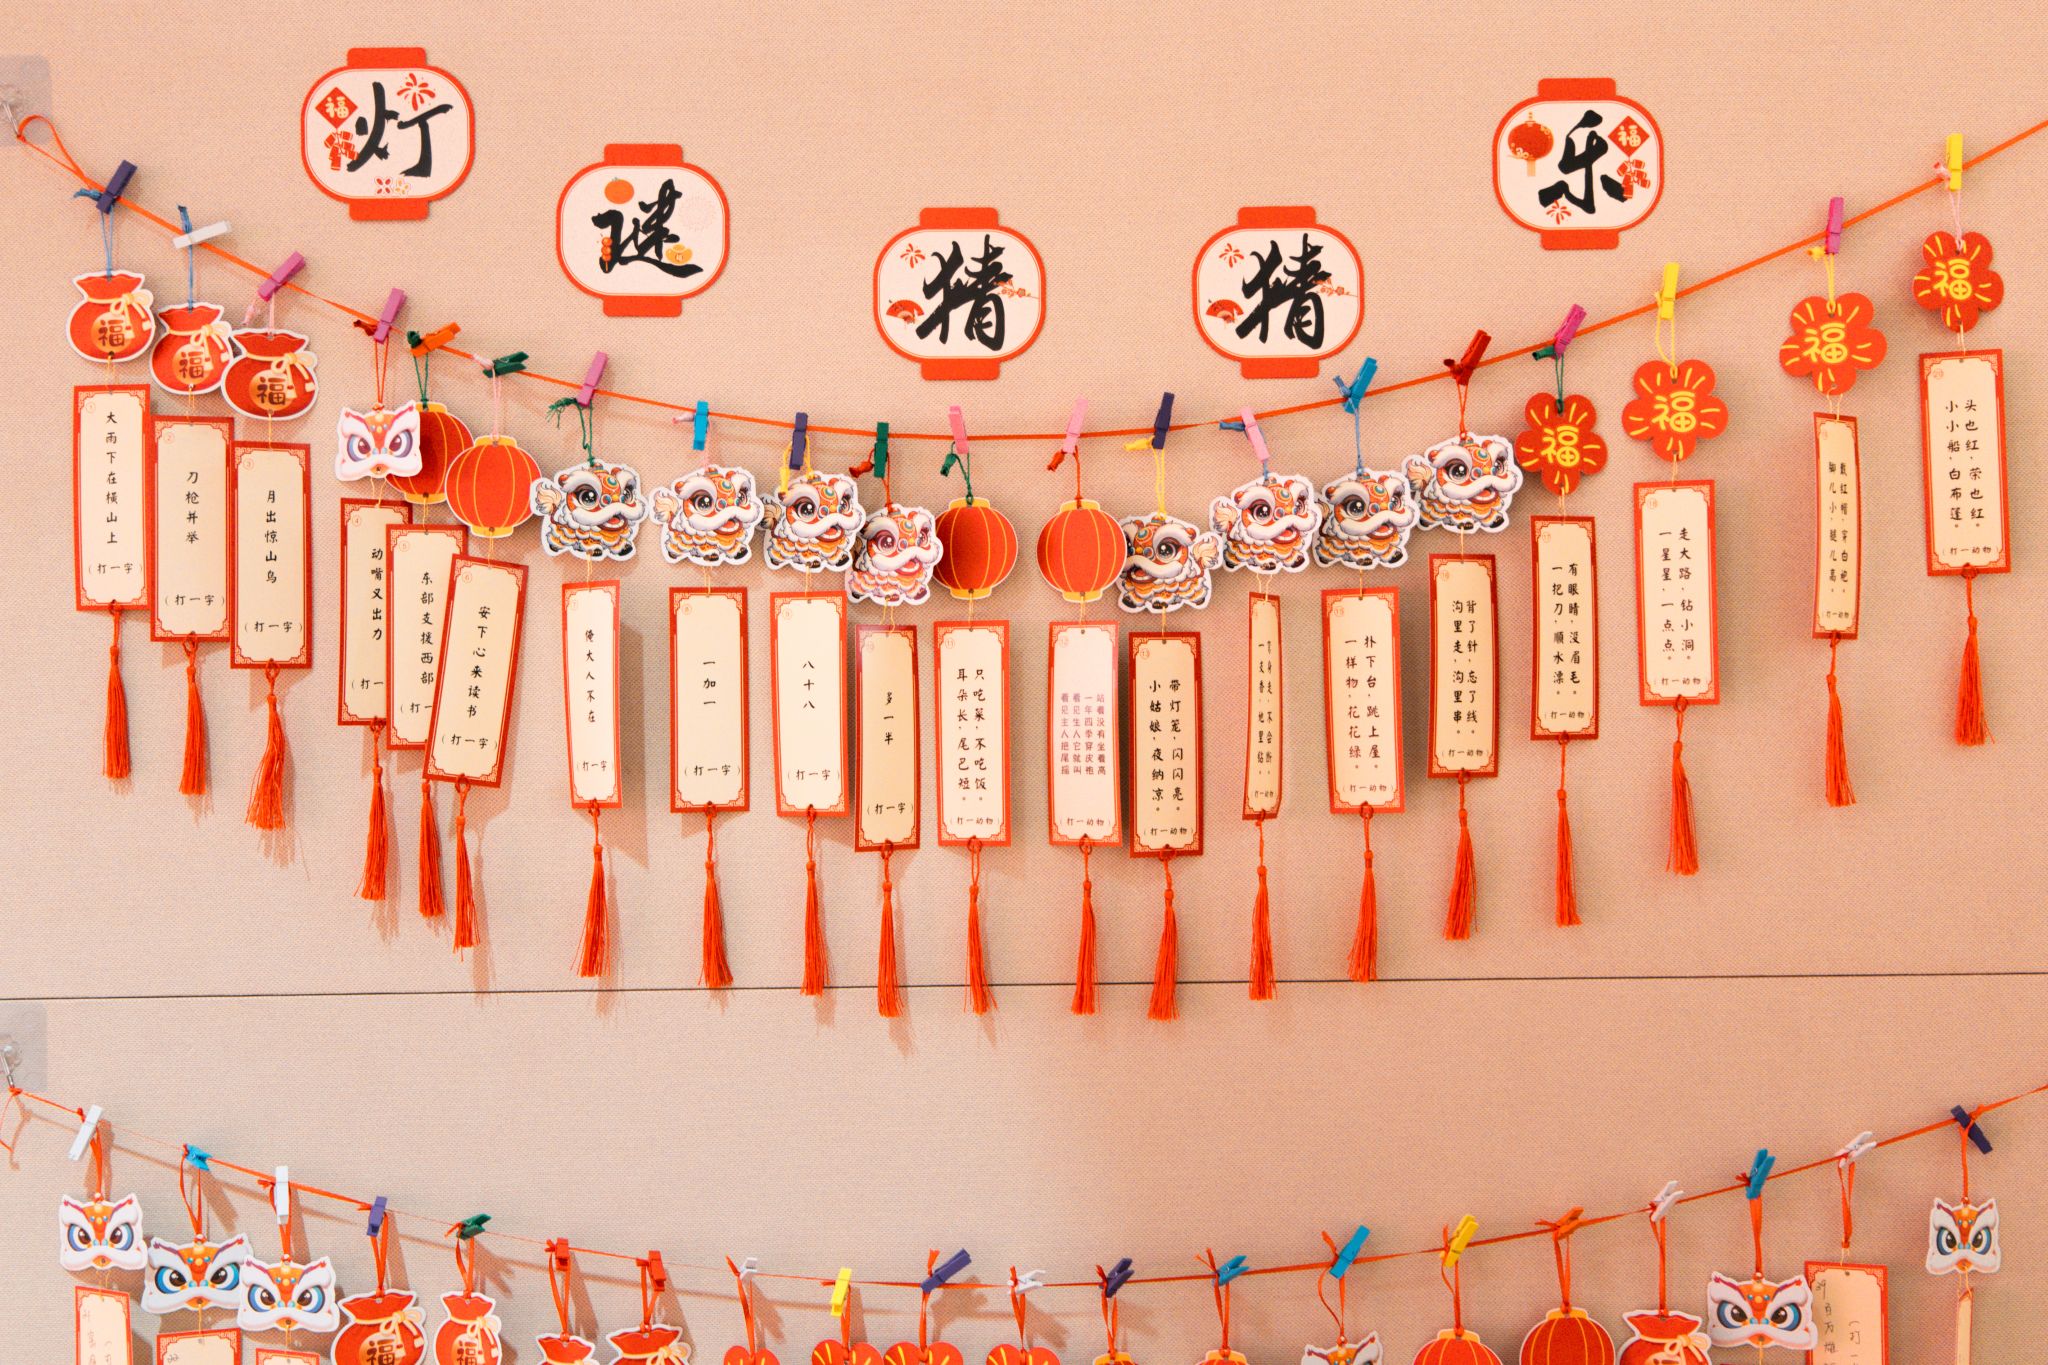 灯
谜
猜
猜
乐
福
福
福
福
福
福
福
福
福
1
大雨下在横山上
(打一字)
2
刀枪并举
(打一字)
3
月出惊山鸟
(打一字)
4
动嘴又出力
(打一
5
东部支援西部
(打一
6
安下心来读书
(打一字)
7
俺大人不在
(打一字)
8
一加一
(打一字)
9
八十八
(打一字)
10
多一半
(打一字)
11
只吃菜,不吃饭。
耳朵长,尾巴短。
(打一动物)
12
站着没有坐着高
一年四季穿皮袍
看见生人它就叫
看见主人把尾摇
(打一动物)
13
带灯笼,闪闪亮。
小姑娘,夜纳凉。
(打一动物)
不会断。
一支香,地里钻。
(打一动物)
15
扑下台,跳上屋。
一样物,花花绿。
(打一动物)
16
背了针,忘了线。
沟里走,沟里串。
(打一动物)
17
有眼睛,没眉毛。
一把刀,顺水漂。
(打一动物)
18
走大路,钻小洞。
一星星,一点点。
(打一动物)
19
戴红帽,穿白袍。
脚儿小,腿儿高。
(打一动物)
20
头也红,荣也红。
小小船,白布篷。
(打一动物)
福
福
福
22